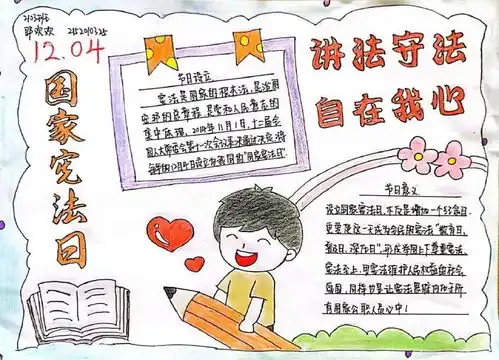 12.04
国家宪法日
讲法守法
自在我心
节日设立
宪法是国家的根本法,是治国
安邦的总章程,是党和人民意志的
集中体现。2014年11月1日,十二届全
国人大常委会第十一次会议
将每年的12月4日设立为我国的“国家宪法日”
节日意义
设立国家宪法日,不仅是增加一个纪念日,
更要使这一天成为全民的宪法“教育日、
普及日、深化日”,形成举国上下尊重宪法、
宪法至上、用宪法维护人民权益的社会
氛围。同时也是让宪法思维内化于所
有国家公职人员心中!